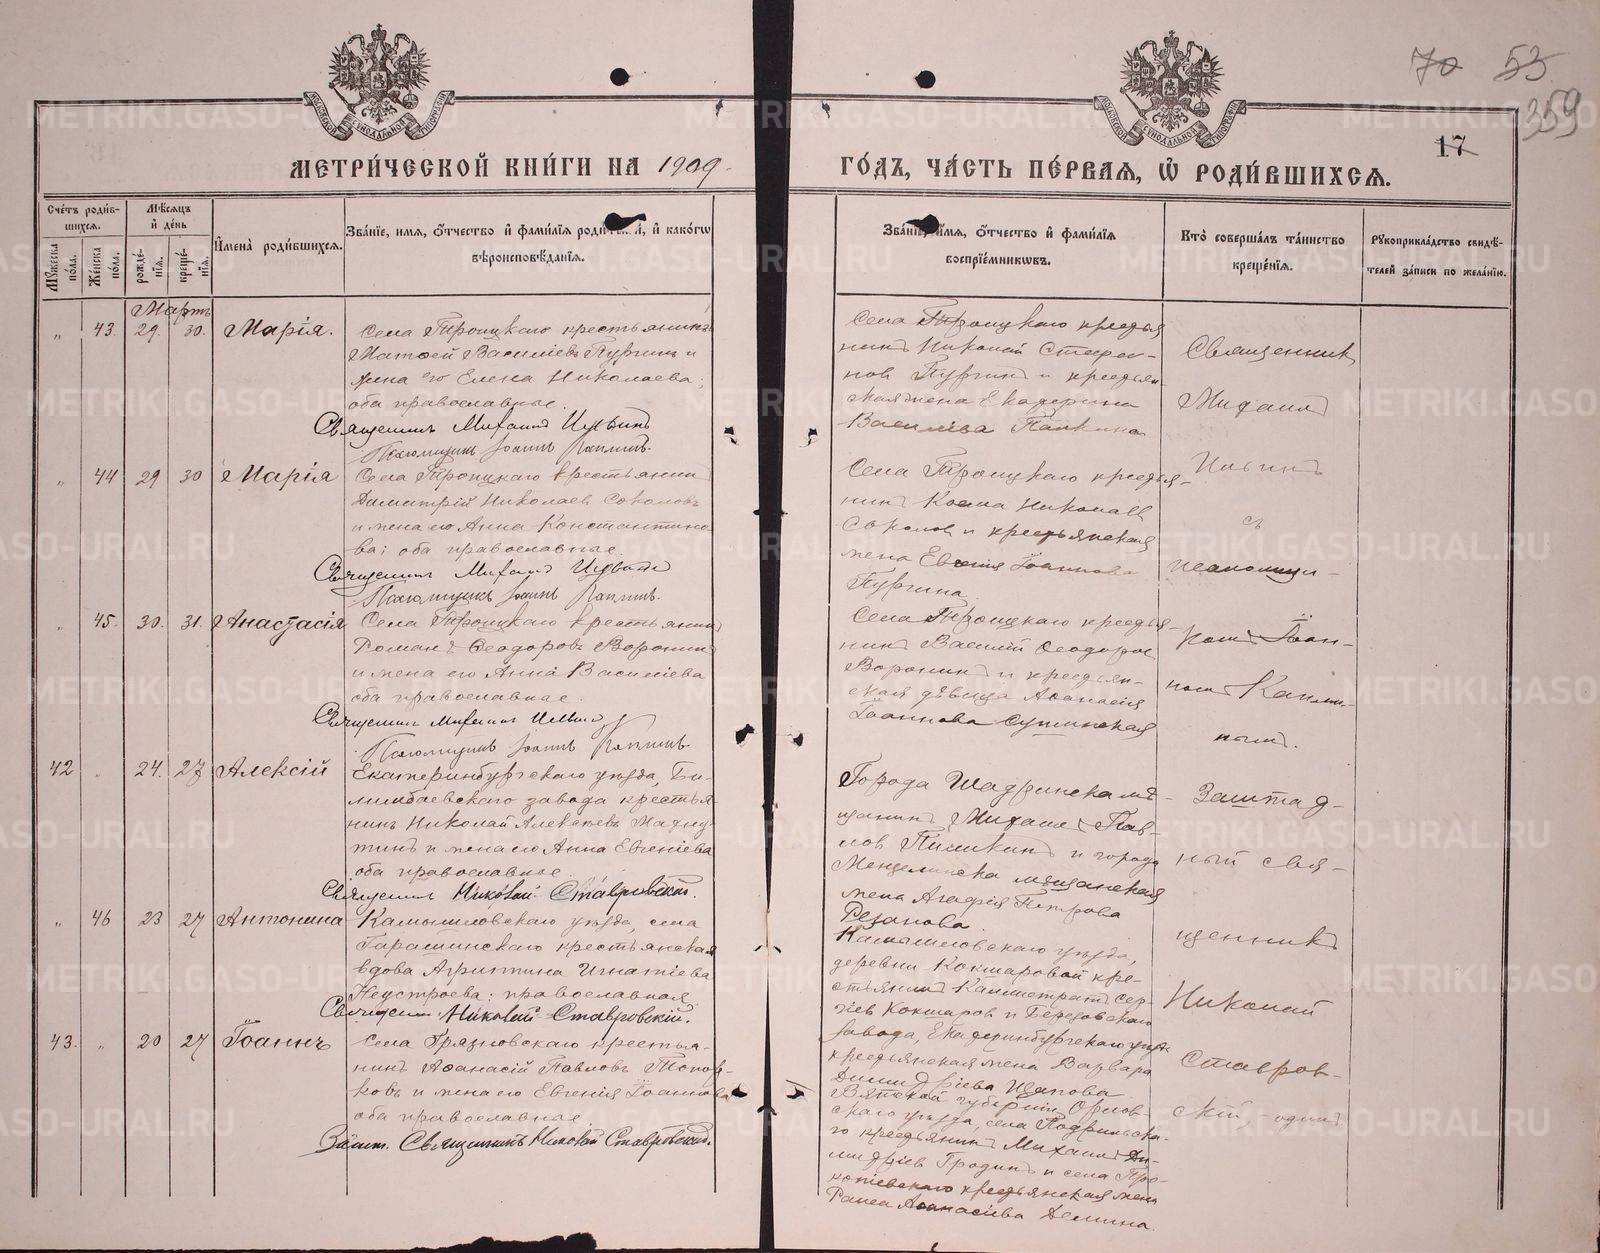 70 53
359
17
МЕТРИ́ЧЕСКОЙ КНИ́ГИ НА 1909
ГО́ДЪ, ЧА́СТЬ ПЕ́РВАЯ, Ѡ҆ РОДИ́ВШИХСЯ.
Сче́тъ роди́в-
шихся.
Му́жеска по́ла.
Же́нска по́ла.
Мѣ́сяцъ
и҆ де́нь
рожде́-
нїя.
креще́-
нїя.
И҆мена̀ роди́вшихся.
Зва́нїе, и҆мя, о҆́тчество и҆ фами́лїя роди́
и҆ како́гѡ
вѣроисповѣ́данїя.
Зва́нїе, и҆мя, о҆́тчество и҆ фами́лїя
воспрїе́мниковъ.
Кто̀ соверша́лъ та́инство
креще́нїя.
Рукоприкла́дство свидѣ́-
телей за́писи по жела́нїю.
Мартъ
" 43. 29. 30. Марія.
Села Троицкаго крестьянинъ
Матѳей Василіевъ Пургинъ и
жена его Елена Николаева;
оба православные.
Священникъ Михаилъ Ильинъ
Псаломщикъ Іоаннъ Каплинъ.
Села Троицкаго крестья
нинъ Николай Стефа-
новъ Пургинъ и крестьян-
ская жена Екатерина
Василіева Папкина
" 44 29 30 Марія
Села Троицкаго крестьянинъ
Димитрій Николаевъ Соколовъ
и жена его Анна Константино-
ва; оба православные.
Священникъ Михаилъ Ильинъ
Псаломщикъ Іоаннъ Каплинъ.
Села Троицкаго крестья-
нинъ Косма Николаев
Соколов и крестьянская
жена Евгенія Іоаннова
Пургина.
" 45. 30. 31. Анастасія
Села Троицкаго крестьянинъ
Романъ Ѳеодоровъ Воронин
и жена его Анна Василіева
оба православные
Священникъ Михаилъ Ильинъ
Псаломщикъ Іоаннъ Каплинъ.
Села Троицкаго крестья-
нинъ Василій Ѳеодоров
Воронинъ и крестьян-
ская дѣвица Аѳанасія
Іоаннова
Священникъ
Михаилъ
Ильинъ
съ
псаломщи-
комъ Іоан-
номъ Капли-
нымъ.
42 " 24. 27 Алексій
Екатеринбургскаго уѣзда, Би-
лимбаевскаго завода крестья-
нинъ Николай Алексѣевъ
и жена его Анна Евгеніева
оба православные
Священникъ Николай Ставровскій.
Города Шадринска мѣ-
щанинъ Михаилъ Пав-
ловъ Пишкинъ и города
Мензелинска мѣщанская
жена Агафія Петрова
Резанова.
" 46 23 27 Антонина
Камышловскаго уѣзда, села
Гарашинскаго крестьянская
вдова Агриппина Игнатіева
Неустроева; православная
Священник Николай Ставровскій.
Камышловскаго уѣзда,
деревни Кокшаровой кре-
стьянинъ Каллистратъ Сер-
гіев Кокшаров и Березовскаго
завода, Екатеринбургскаго уѣзда
крестьянская жена Варвара
Димитріева Щапова
43. " 20 27 Іоаннъ
села Грязновскаго крестья-
нинъ Аѳанасій Павловъ Топор-
ковъ и жена его Евгенія Іоаннова
оба православные
Зашт. Священникъ Николай Ставровскій.
Вятской губерніи Орлов-
скаго уѣзда, села
го крестьянинъ Михаилъ Ди-
митріев Гродинъ и села
крестьянская жена
Раиса Аѳанасіева Демина.
Заштат-
ный свя-
щенникъ
Николай
Ставров-
скій - одинъ
METRIKI.GASO-URAL.RU